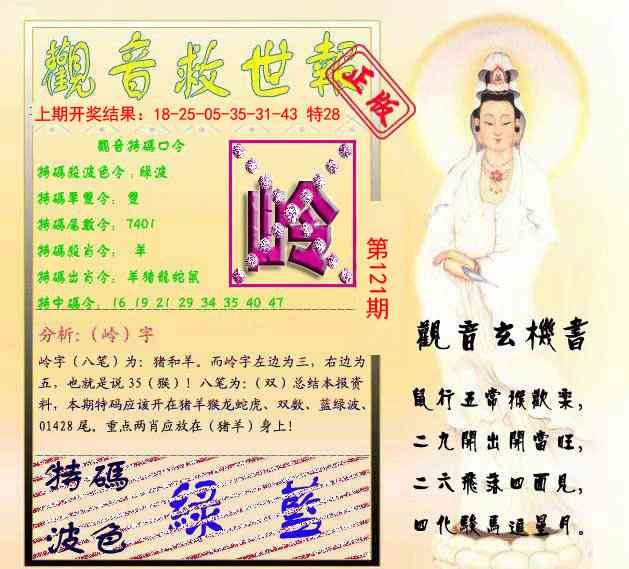 觀音救世報
正版
上期开奖结果：18-25-05-35-31-43 特28
觀音特碼口令
特碼殺波色令：綠波
特碼單雙令：雙
特碼尾數令：7401
特碼殺肖令：羊
特碼出肖令：羊猪龍蛇鼠
特中碼令：16 19 21 29 34 35 40 47
岭
第121期
分析:（岭）字
岭字（八笔）为：猪和羊。而岭字左边为三，右边为
五，也就是说 35（猴）！八笔为：（双）总结本报资
料，本期特码应该开在猪羊猴龙蛇虎、双数、蓝绿波、
01428 尾。重点两肖应放在（猪羊）身上！
特碼
波色
綠 藍
觀音玄機書
鼠行五常猴歡樂，
二九開出開當旺，
二六飛落四面見，
四化駿馬追星月。